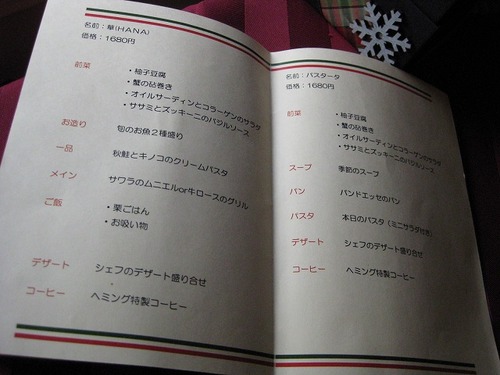 名前：華(HANA)
価格：1680円
前菜
・柚子豆腐
・蟹の砧巻き
・オイルサーディンとコラーゲンのサラダ
・ササミとズッキーニのバジルソース
お造り 旬のお魚2種盛り
一品 秋鮭とキノコのクリームパスタ
メイン サワラのムニエルor牛ロースのグリル
ご飯
・栗ごはん
・お吸い物
デザート シェフのデザート盛り合せ
コーヒー ヘミング特製コーヒー
名前：パスタータ
価格：1680円
前菜
・柚子豆腐
・蟹の砧巻き
・オイルサーディンとコラーゲンのサラダ
・ササミとズッキーニのバジルソース
スープ 季節のスープ
パン パンドエッセのパン
パスタ 本日のパスタ（ミニサラダ付き）
デザート シェフのデザート盛り合せ
コーヒー ヘミング特製コーヒー